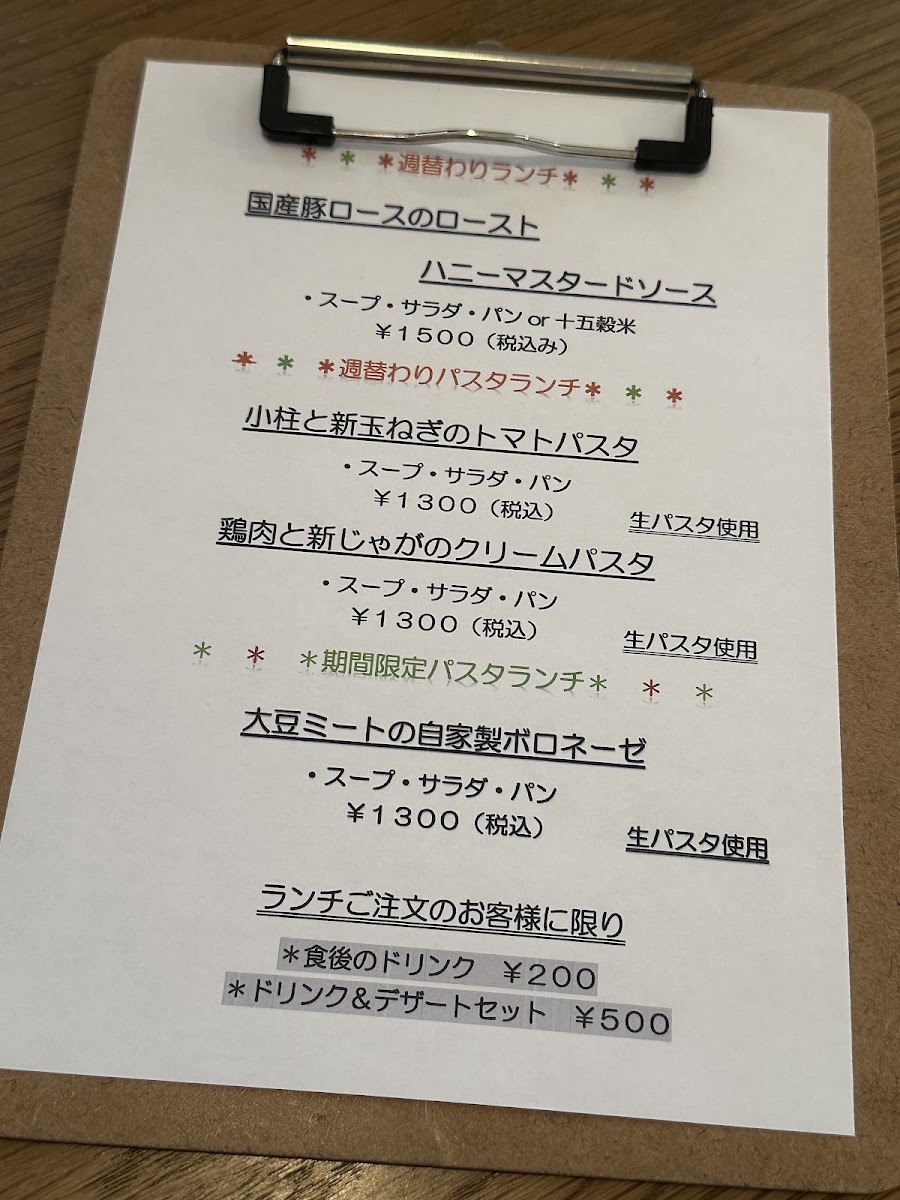 ＊ ＊ ＊週替わりランチ＊ ＊ ＊
国産豚ロースのロースト
ハニーマスタードソース
・スープ・サラダ・パン or 十五穀米
￥１５００（税込み）
＊ ＊ ＊週替わりパスタランチ＊ ＊ ＊
小柱と新玉ねぎのトマトパスタ
・スープ・サラダ・パン
￥１３００（税込）
生パスタ使用
鶏肉と新じゃがのクリームパスタ
・スープ・サラダ・パン
￥１３００（税込）
生パスタ使用
＊ ＊ ＊期間限定パスタランチ＊ ＊ ＊
大豆ミートの自家製ボロネーゼ
・スープ・サラダ・パン
￥１３００（税込）
生パスタ使用
ランチご注文のお客様に限り
＊食後のドリンク　￥２００
＊ドリンク＆デザートセット　￥５００